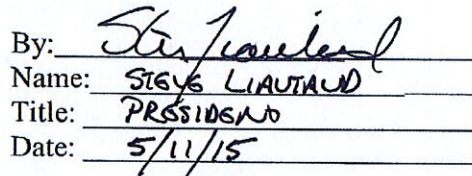 By: Steve Liautaud
Name: STEVE LIAUTAUD
Title: PRESIDENT
Date: 5/11/15